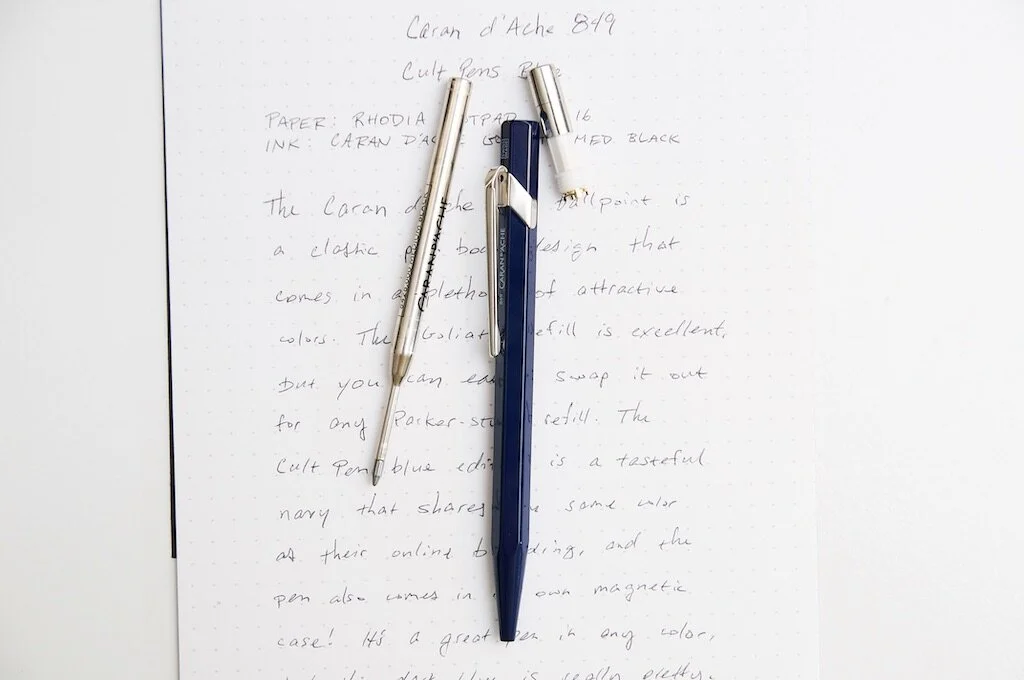 Caran d'Ache 849
Cult Pens
PAPER: RHODIA 16
INK: CARAN D'AC MED BLACK
The Caran d' che ballpoint is
a classic p bod design that
comes in a pletho of attractive
colors. The Goliat refill is excellent,
but you can ea swap it out
for any Parker-sty refill. The
Cult Pen blue edi is a tasteful
navy that shares same color
as their online b ding, and the
pen also comes in own magnetic
case! It's a great pen in any color,
is really pretty.
CARAN D'ACHE
CARAN D'ACHE